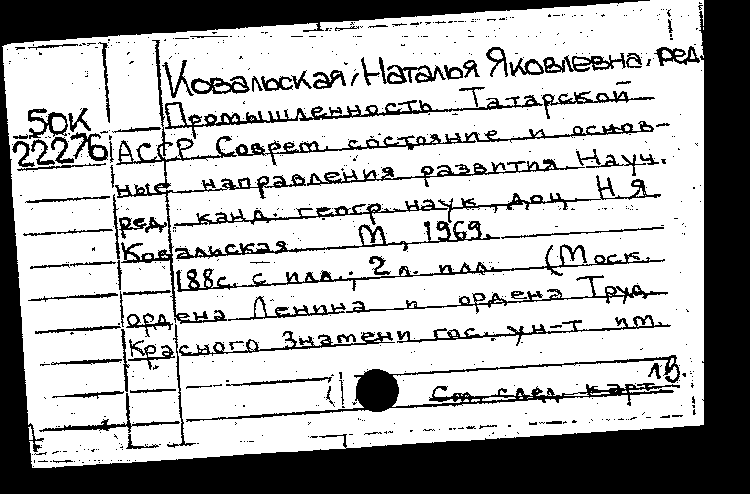 Ковальская, Наталья Яковлевна, ред.
50К
22276
Промышленность Татарской
АССР Соврем. состояние и основ-
ные направления развития Науч.
ред. канд. геогр. наук, доц. Н Я
Ковальская М, 1969.
188с. с илл.; 2 л. илл. (Моск.
ордена Ленина и ордена Труд.
Красного Знамени гос. ун-т им.
1В.
См. след. карт.